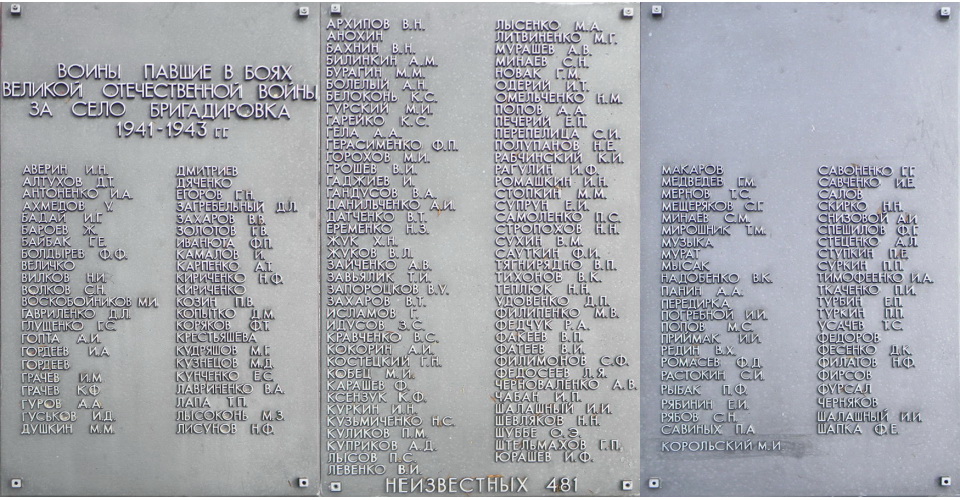 ВОИНЫ ПАВШИЕ В БОЯХ
ВЕЛИКОЙ ОТЕЧЕСТВЕННОЙ ВОЙНЫ
ЗА СЕЛО БРИГАДИРОВКА
1941-1943 Г.Г.
АВЕРИН И.Н.
АЛТУХОВ Д.Т.
АНТОНЕНКО И.А.
АХМЕДОВ У.
БАДАЙ И.Г.
БАРОЕВ Ж.
БАЙБАК Г.Е.
БОЛДЫРЕВ Ф.Ф.
ВЕЛИЧКО
ВИЛКОВ Н.И.
ВОЛКОВ С.Н.
ВОСКОБОЙНИКОВ М.И.
ГАВРИЛЕНКО Д.Л.
ГЛУЩЕНКО Г.С.
ГОПТА А.И.
ГОРДЕЕВ И.А.
ГОРДЕЕВ
ГРАЧЕВ И.М.
ГРАЧЕВ К.Ф.
ГУРОВ А.А.
ГУСЬКОВ И.Д.
ДУШКИН М.М.
ДМИТРИЕВ
ДЯЧЕНКО
ЕГОРОВ Г.Н.
ЗАГРЕБЕЛЬНЫЙ Д.Л.
ЗАХАРОВ В.В.
ЗОЛОТОВ Г.В.
ИВАНЮТА Ф.П.
КАМАЛОВ И.
КАРПЕНКО А.Т.
КИРИЧЕНКО Н.Ф.
КИРИЧЕНКО
КОЗИН П.В.
КОПЫТКО Д.М.
КОРЯКОВ Ф.Т.
КРЕСТЬЯШЕВА
КУДРЯШОВ М.Г.
КУЗНЕЦОВ М.Д.
КУПЧЕНКО Е.С.
ЛАВРИНЕНКО В.А.
ЛАПА Т.П.
ЛЫСОКОНЬ М.З.
ЛИСУНОВ Н.Ф.
АРХИПОВ В.Н.
АНОХИН
БАХНИН В.Н.
БИЛИНКИН А.М.
БУРАГИН М.М.
БОЛЕЛЫЙ А.Н.
БЕЛОКОНЬ К.С.
ГУРСКИЙ М.И.
ГАРЕЙКО К.С.
ГЕЛА А.А.
ГЕРАСИМЕНКО Ф.П.
ГОРОХОВ М.И.
ГРОШЕВ В.И.
ГАДЖИЕВ И.
ГАНДУСОВ В.А.
ДАНИЛЬЧЕНКО А.И.
ДАТЧЕНКО В.Т.
ЕРЕМЕНКО Н.З.
ЖУК Х.Н.
ЖУКОВ В.Л.
ЗАЙЧЕНКО А.В.
ЗАВЬЯЛИК Т.И.
ЗАПОРОЦКОВ В.У.
ЗАХАРОВ В.Т.
ИСЛАМОВ Г.
ИДУСОВ З.С.
КРАВЧЕНКО В.С.
КОКОРИН А.И.
КОСТЕЦКИЙ Г.Н.
КОБЕЦ М.И.
КАРАШЕВ Ф.
КСЕНЗУК К.Ф.
КУРКИН И.Н.
КУЗЬМИЧЕНКО Н.С.
КУЛИКОВ П.М.
КУПРИКОВ А.Д.
ЛЫСОВ П.С.
ЛЕВЕНКО В.И.
ЛЫСЕНКО М.А.
ЛИТВИНЕНКО М.Г.
МУРАШЕВ А.В.
МИНАЕВ С.Н.
НОВАК Г.М.
ОДЕРИЙ И.Т.
ОМЕЛЬЧЕНКО Н.М.
ПОПОВ А.А.
ПЕЧЕРИЙ Е.П.
ПЕРЕПЕЛИЦА С.И.
ПОЛУПАНОВ Н.Е.
РАБЧИНСКИЙ К.И.
РАГУЛИН И.Ф.
РОМАШКИН И.Н.
СТОПКИН М.М.
СУПРУН Е.И.
САМОЛЕНКО П.С.
СТРОПОХОВ Н.Н.
СУХИН В.М.
САУТКИН Ф.И.
ТЯГНИРЯДНО В.П.
ТИХОНОВ В.К.
ТЕПЛЮК Н.Н.
УДОВЕНКО Д.П.
ФИЛИПЕНКО М.В.
ФЕДЧУК Р.А.
ФАКЕЕВ В.П.
ФАТЕЕВ В.И.
ФИЛИМОНОВ С.Ф.
ФЕДОСЕЕВ Л.Я.
ЧЕРНОВАЛЕНКО А.В.
ЧАБАН И.П.
ШАЛАШНЫЙ И.И.
ШЕВЛЯКОВ Н.Н.
ШУББЕ О.Э.
ШТЕЛЬМАХОВ Г.П.
ЮРАШЕВ И.Ф.
НЕИЗВЕСТНЫХ 481
МАКАРОВ
МЕДВЕДЕВ Г.М.
МЕРНОВ Т.С.
МЕЩЕРЯКОВ С.Г.
МИНАЕВ С.М.
МИРОШНИК Т.М.
МУЗЫКА
МУРАТ
МЫСАК
НАДОБЕНКО В.К.
ПАНИН А.А.
ПЕРЕДИРКА
ПОГРЕБНОЙ И.И.
ПОПОВ М.С.
ПРИЙМАК И.И.
РЕДИН В.Х.
РОМАСЕВ Ф.Д.
РАСТОКИН С.И.
РЫБАК П.Ф.
РЯБИНИН Е.И.
РЯБОВ С.Н.
САВИНЫХ П.А.
КОРОЛЬСКИЙ М.И.
САВОНЕНКО Г.Г.
САВЧЕНКО И.Е.
САЛОВ
СКИРКО Н.Н.
СНИЗОВОЙ А.И.
СПЕШИЛОВ Ф.Г.
СТЕЦЕНКО А.Л.
СТУПКИН П.Е.
СУРКИН П.П.
ТИМОФЕЕНКО И.А.
ТКАЧЕНКО П.И.
ТУРБИН Е.П.
ТУРКИН П.П.
УСАЧЕВ Т.С.
ФЕДОРОВ
ФЕСЕНКО Д.К.
ФИЛАТОВ Н.Ф.
ФИРСОВ
ФУРСАЛ
ЧЕРНЯКОВ
ШАЛАШНЫЙ И.И.
ШАПКА Ф.Е.